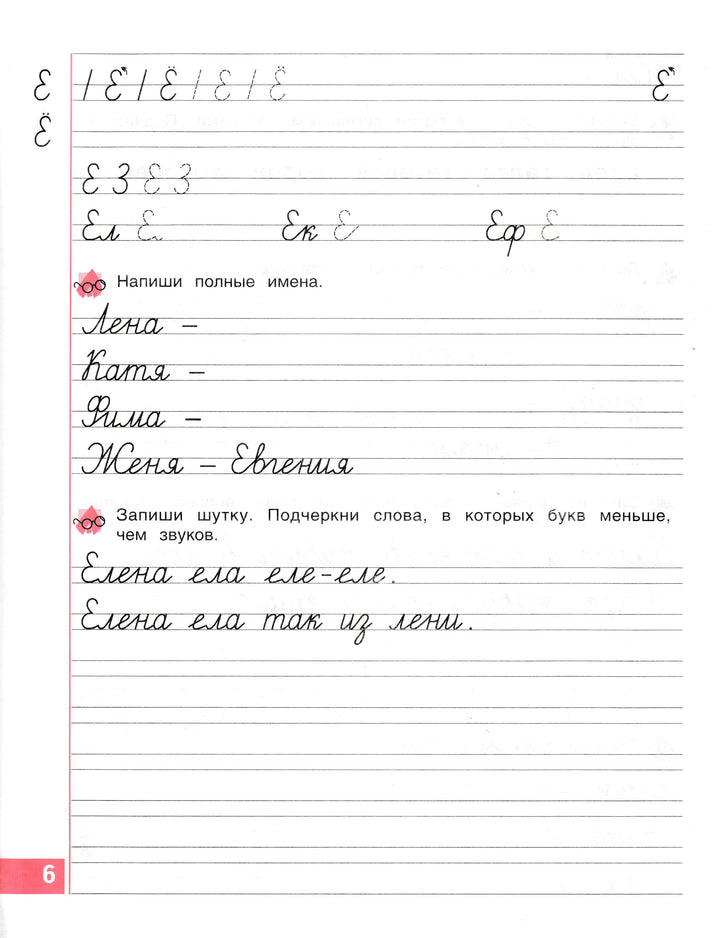 Е Е Ё Е Ё Е
Ё
Е З Е З
Ел Е Ек Е Еф Е
Напиши полные имена.
Лена –
Катя –
Фима –
Женя – Евгения
Запиши шутку. Подчеркни слова, в которых букв меньше,
чем звуков.
Елена ела еле-еле.
Елена ела так из лени.
6